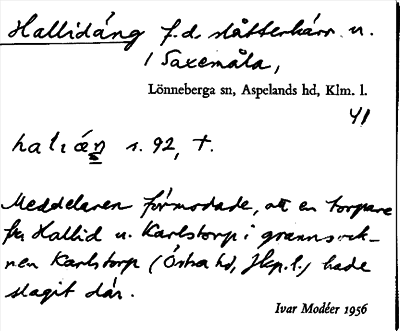 Hallidäng f.d. slåtterkärr n.
i Saxemåla,
Lönneberga sn, Aspelands hd, Klm. l.
41
s. 92, †.
Meddelaren förmodade, att en torpare
fr. Hallid u. Karlstorp i grannsock-
nen Karlstorp (Östra hd, Jkp.l.) hade
slagit där.
Ivar Modéer 1956